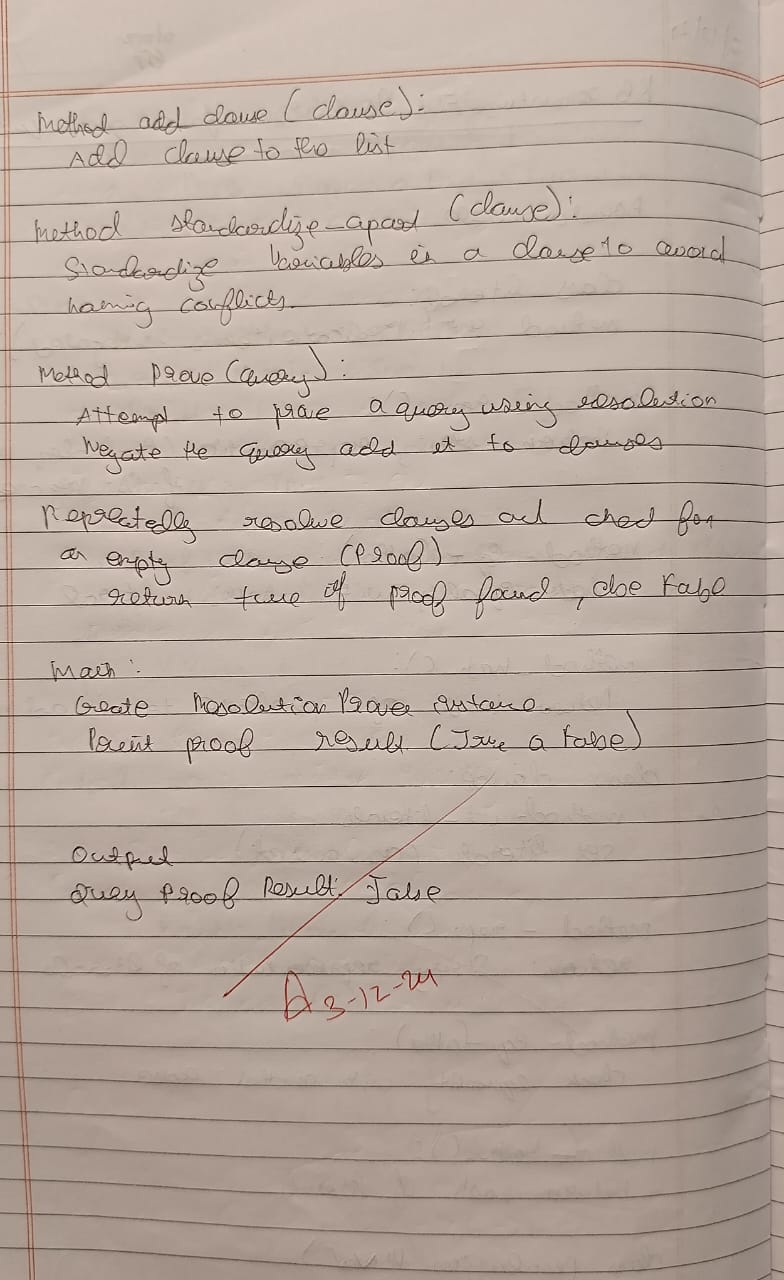 Method add clause (clause):
Add clause to the list
Method standardize-apart (clause):
Standardize Variables in a clause to avoid
naming conflicts.
Method prove (query):
Attempt to prove a query using resolution
Negate the query add it to clauses
Repeatedly resolve clauses and check for
an empty clause (proof)
return true if proof found, else False
Main:
Create Resolution Prover instance.
Print proof result (True or False)
Output
Query Proof Result: False
3-12-24